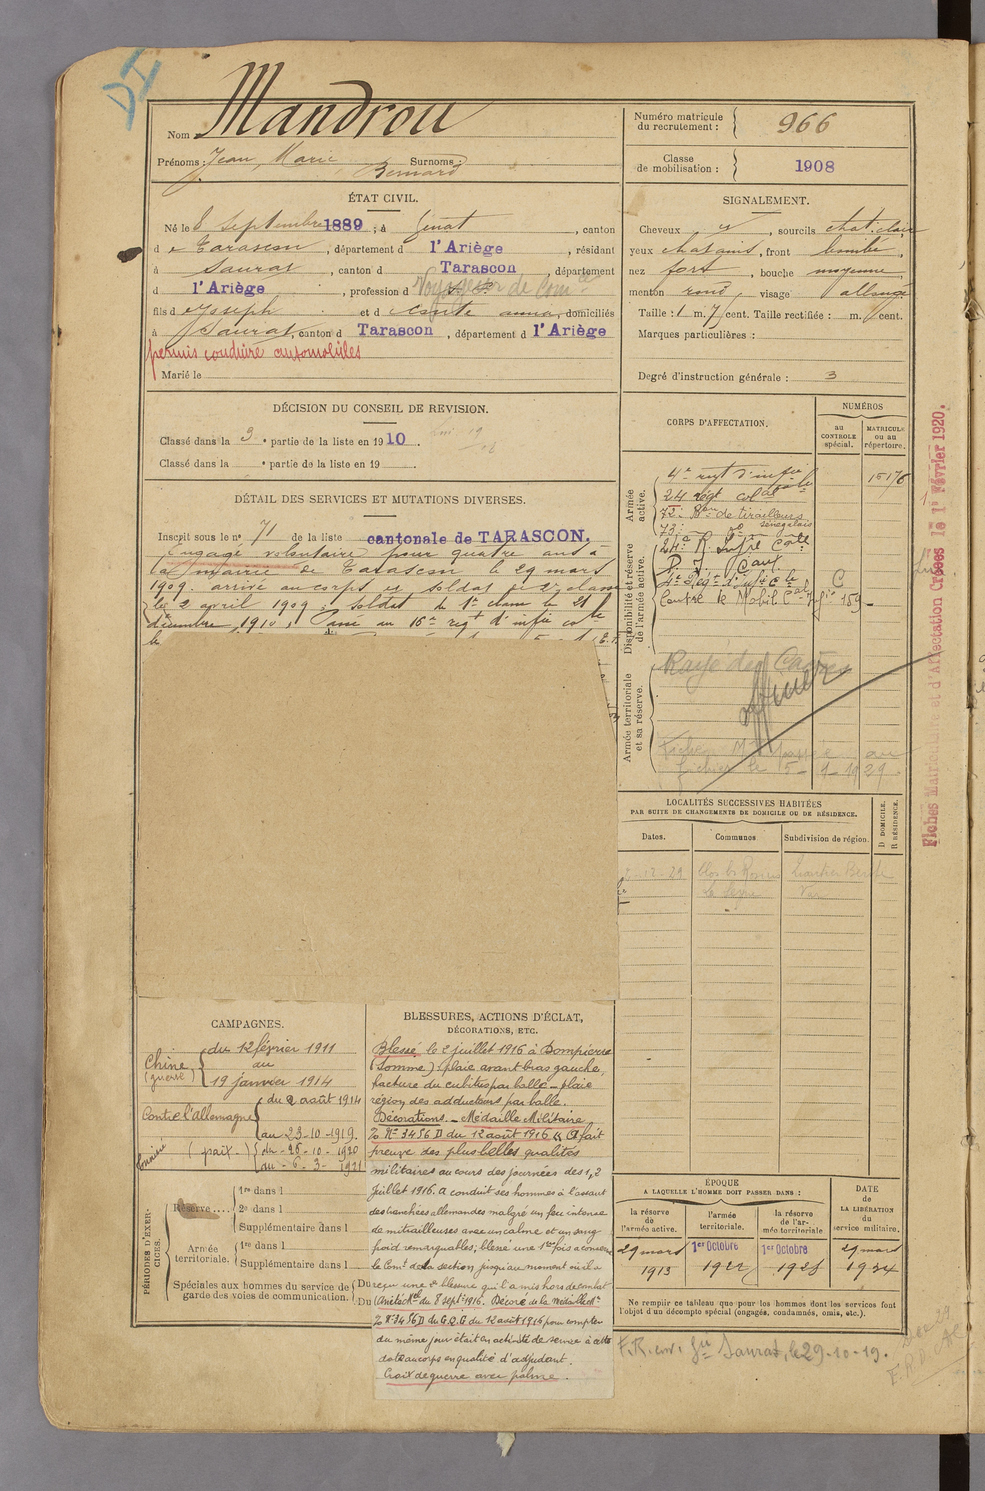 DI
Nom Mandrou
Prénoms : Jean, Marie Surnoms :
Bernard
Numéro matricule
du recrutement : 966
Classe
de mobilisation : 1908
ÉTAT CIVIL.
Né le 8 septembre 1889, à Génat, canton
de Tarascon, département d l'Ariège, résidant
à Saurat, canton d Tarascon, département
d l'Ariège, profession d Voyageur de Com
fils d Joseph et d anna, domiciliés
à Saurat, canton d Tarascon, département d l'Ariège
permis conduire automobiles
Marié le
SIGNALEMENT.
Cheveux , sourcils chat. clair
yeux chatains, front
nez fort, bouche moyenne,
menton rond, visage allongé
Taille : 1 m. 71 cent. Taille rectifiée : m. cent.
Marques particulières :
Degré d'instruction générale : 3
DÉCISION DU CONSEIL DE REVISION.
Classé dans la 3e partie de la liste en 1910
Classé dans la e partie de la liste en 19 .
DÉTAIL DES SERVICES ET MUTATIONS DIVERSES.
Inscrit sous le no 71 de la liste cantonale de TARASCON.
Engagé volontaire pour quatre ans à
la mairie de Tarascon le 29 mars
1909. arrivé au corps et soldat de 2e classe
le 2 avril 1909. Soldat de 1re classe le 21
décembre 1910, Passé au 16e regt d'infie cole
le
CORPS D'AFFECTATION.
NUMÉROS
au
CONTROLE
spécial.
MATRICULE
ou au
répertoire.
Armée
active.
4e regt d'infie
cole
15176
24 regt col
72e Bon de tirailleurs
sénégalais
73e do
Disponibilité et réserve
de l'armée active.
24e R. Infie Cole
4e Régt d'Infie Cle C
Centre de Mobil Cal 159
Armée territoriale
et sa réserve.
Rayé des Cadres
fichier le 5-9-1929
Fiches Matricule et d'Affectation Créées le 1er Février 1920.
LOCALITÉS SUCCESSIVES HABITÉES
PAR SUITE DE CHANGEMENTS DE DOMICILE OU DE RÉSIDENCE.
Dates.
Communes
Subdivision de région.
D DOMICILE.
R RÉSIDENCE.
Quartier
Var
CAMPAGNES.
Chine
(guerre)
du 12 février 1911
au
19 janvier 1914
Contre l'allemagne
du 2 août 1914
au 23-10-1919.
(paix)
du 26-10-1920
au 6-3-1921
PÉRIODES D'EXERCICES.
Réserve....
1re dans l
2e dans l
Supplémentaire dans l
Armée
territoriale.
1re dans l
Supplémentaire dans l
Spéciales aux hommes du service de
garde des voies de communication.
Du
Du
BLESSURES, ACTIONS D'ÉCLAT,
DÉCORATIONS, ETC.
Blessé le 2 juillet 1916 à Dompierre
(Somme) plaie avant bras gauche,
facture du cubitus par balle - plaie
région des adducteurs par balle.
Décorations. - Médaille Militaire
No 3456 D du 12 août 1916 « A fait
preuve des plus belles qualités
militaires au cours des journées des 1, 2
Juillet 1916. A conduit ses hommes à l'assaut
des tranchées allemandes malgré un feu intense
de mitrailleuses avec un calme et un sang
froid remarquables; blessé une 1ère fois a conservé
le Comt de la section jusqu'au moment où il a
reçu une 2e blessure qui l'a mis hors de combat
du 8 septre 1916. Décoré de la Médaille Mre
No 3456 D du G.Q.G du 12 août 1916 pour compter
du même jour était en activité de service à cette
date au corps en qualité d'adjudant.
Croix de guerre avec palme.
ÉPOQUE
A LAQUELLE L'HOMME DOIT PASSER DANS :
la réserve
de
l'armée active.
l'armée
territoriale.
la réserve
de l'ar-
mée territoriale
DATE
de
LA LIBÉRATION
du
service militaire.
29 mars 1913
1er Octobre 1922
1er Octobre 1928
29 mars 1934
Ne remplir ce tableau que pour les hommes dont les services font
l'objet d'un décompte spécial (engagés, condamnés, omis, etc.).
F.R. env. Gie Saurat, le 29-10-19.